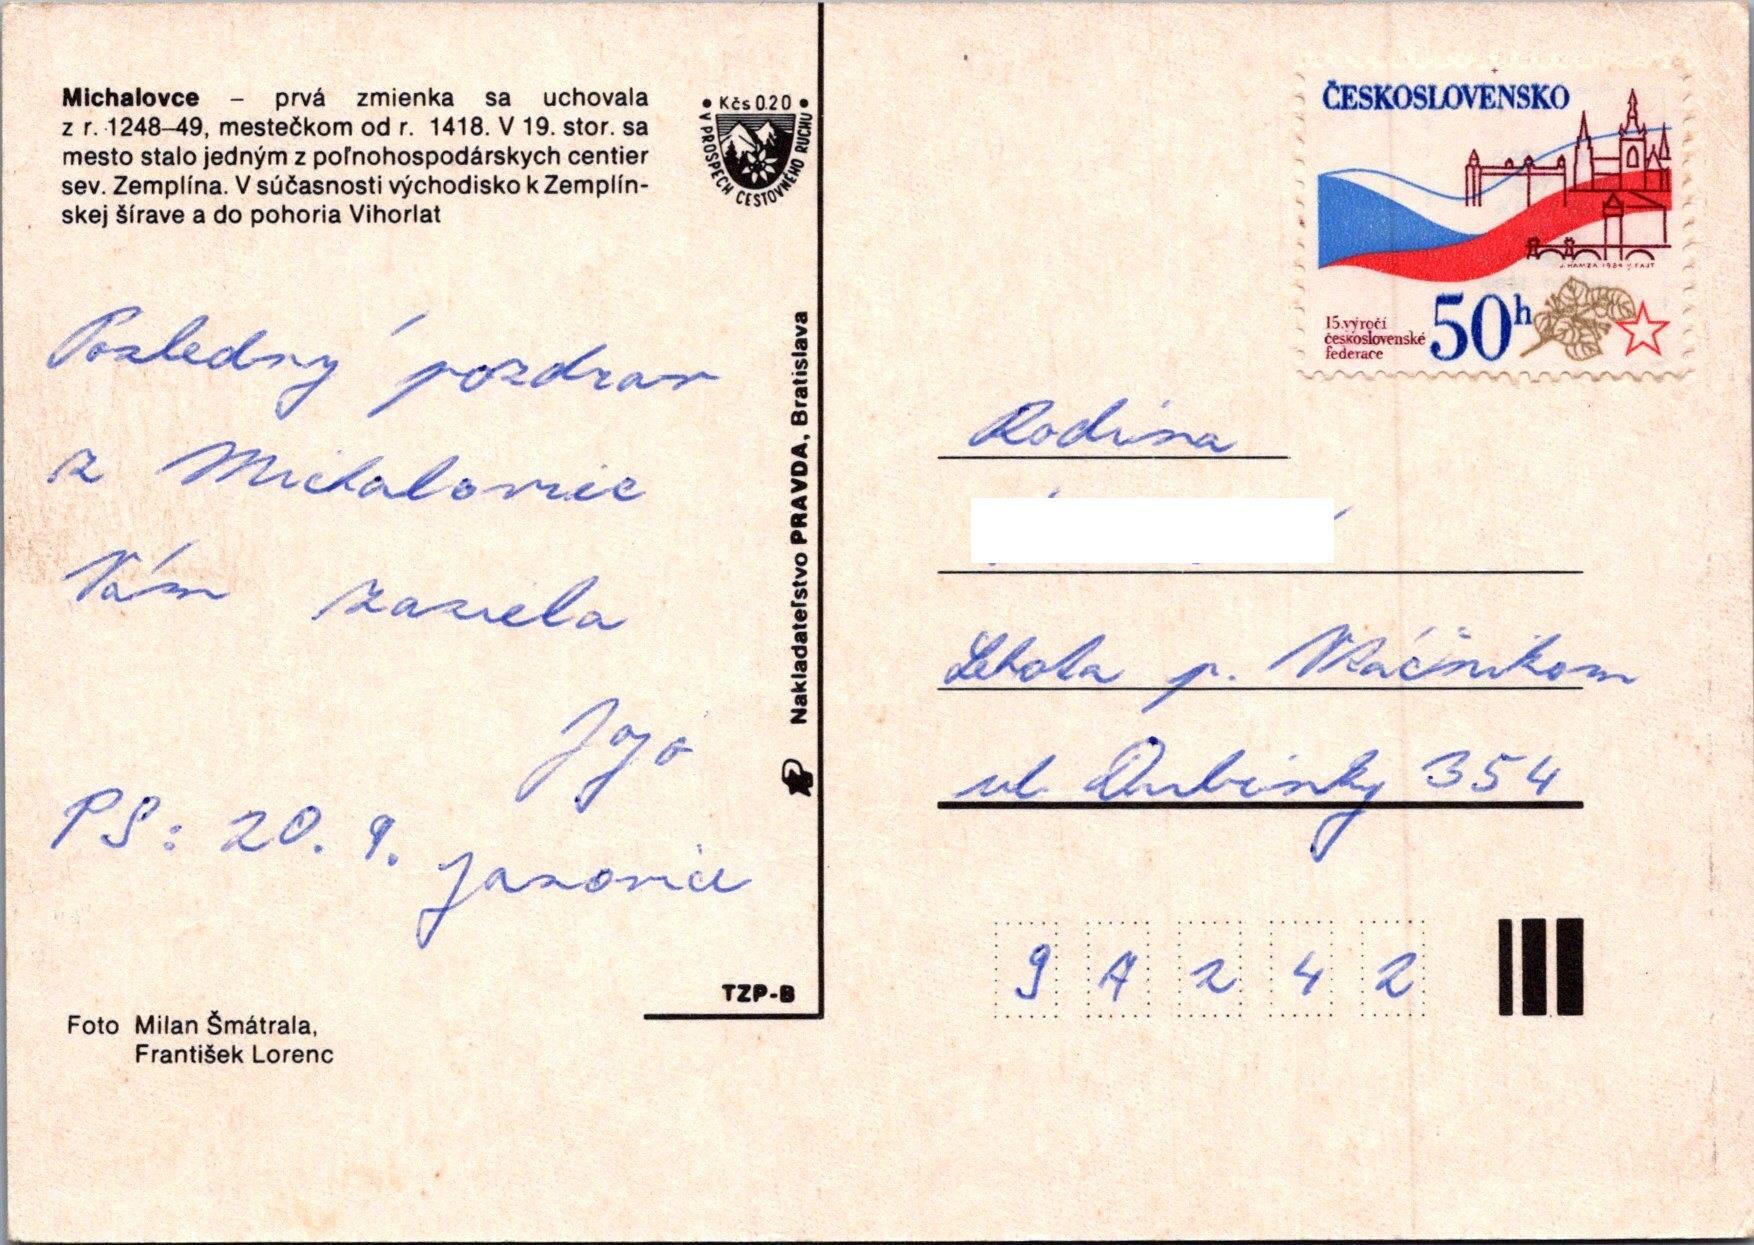 Michalovce – prvá zmienka sa uchovala
z r. 1248–49, mestečkom od r. 1418. V 19. stor. sa
mesto stalo jedným z poľnohospodárskych centier
sev. Zemplína. V súčasnosti východisko k Zemplín-
skej šírave a do pohoria Vihorlat
• Kčs 0.20 •
V PROSPECH CESTOVNÉHO RUCHU
Posledný pozdrav
z Michaloviec
Vám zasiela
Jojo
PS: 20. 9. Janovce
Foto Milan Šmátrala,
František Lorenc
TZP-B
Nakladateľstvo PRAVDA, Bratislava
ČESKOSLOVENSKO
J. HAMZA 1984 V. FAJT
15. výročí
československé
federace
50h
Rodina
Lehota p. Vtáčnikom
ul. Dubinky 354
97242